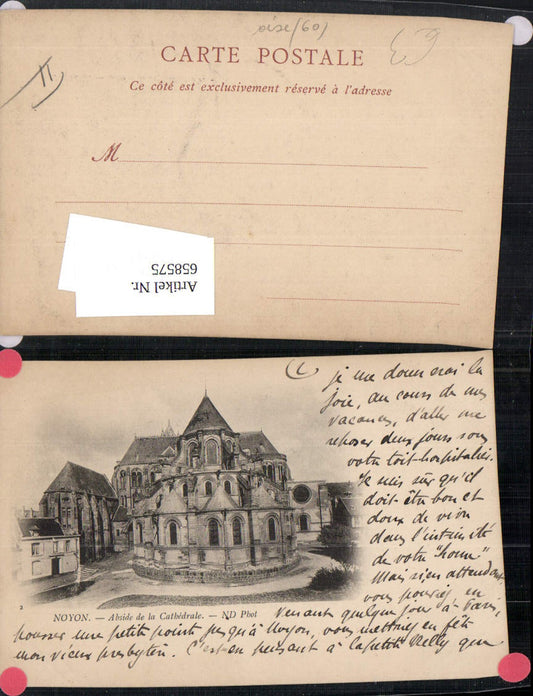 oise (60)
CARTE POSTALE
Ce côté est exclusivement réservé à l'adresse
M
Artikel Nr.
658575
je me donnerai la
joie, au cours de mes
vacances, d'aller me
reposer deux jours sous
votre toit hospitalier.
Je suis sûr qu'il
doit être bon et
doux de vivre
dans l'intimité
de votre "home"
Mais si en attendant
vous pouviez en
venant quelque jour à Paris,
pousser une petite pointe jusqu'à Noyon, vous mettriez en fête
mon vieux presbytère. C'est en pensant à la petite Nelly que
2
NOYON. — Abside de la Cathédrale. — ND Phot